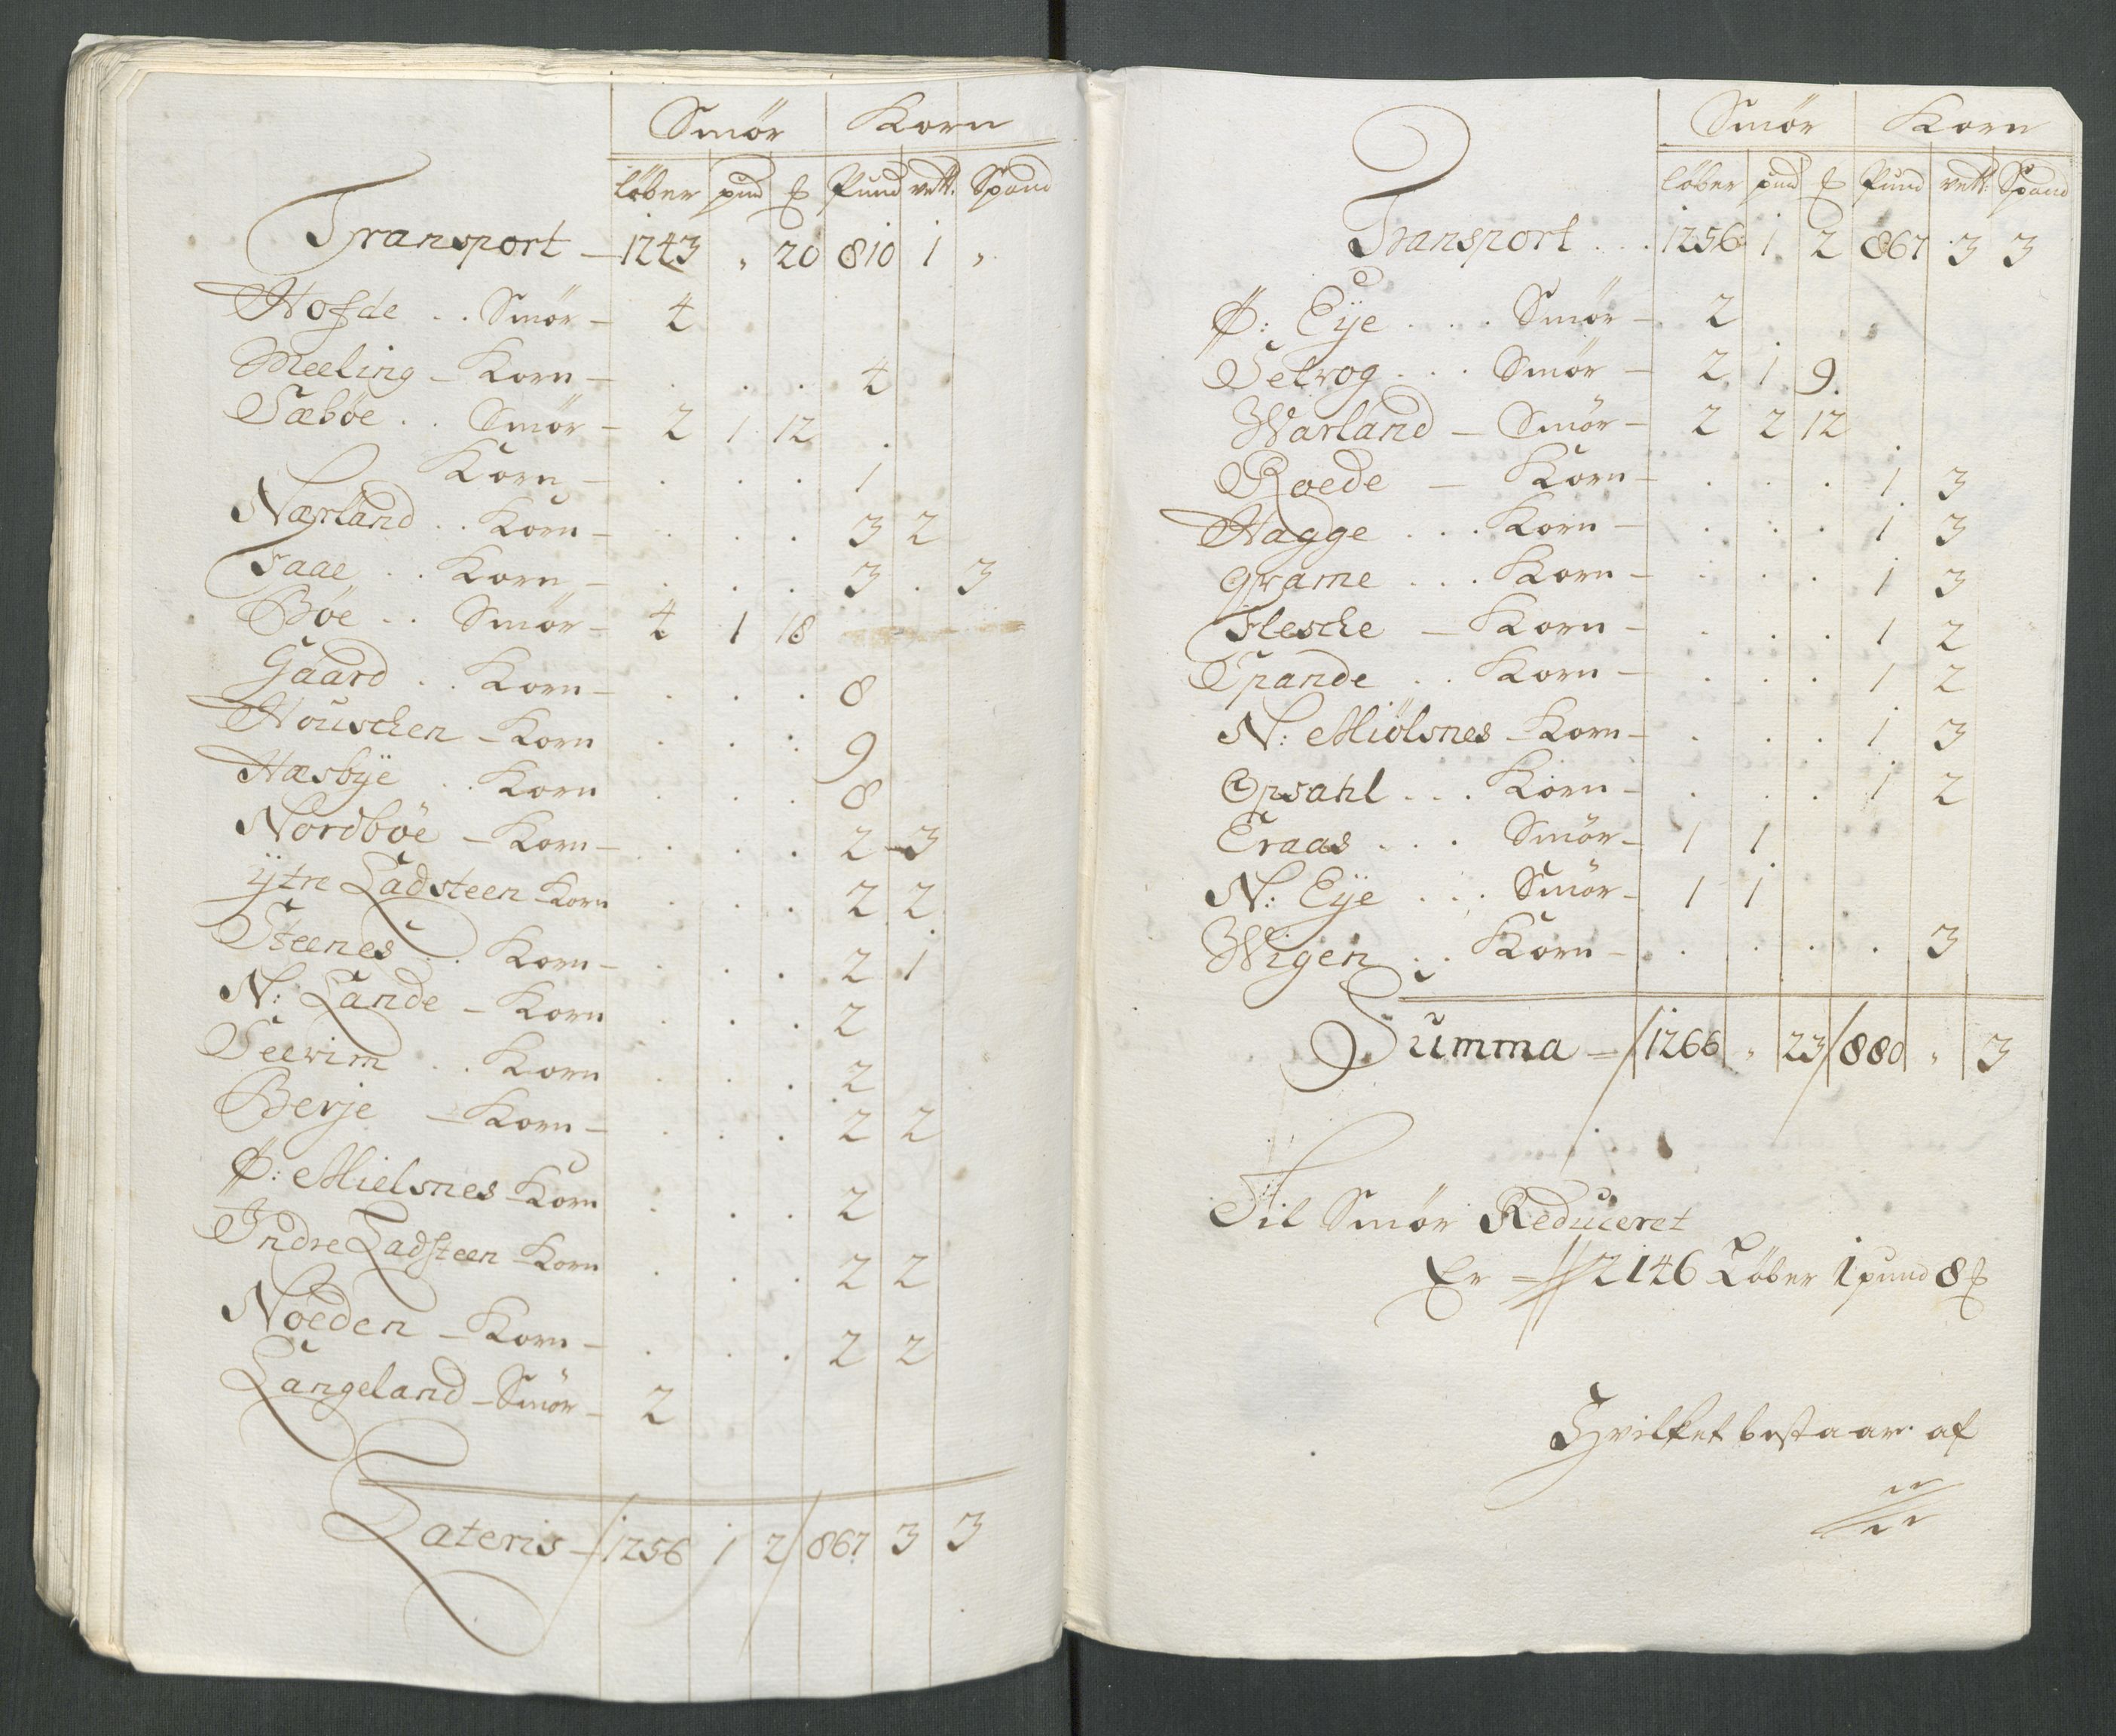 Smör Korn
löber pund ℔ Pund vett: Spand
Transport – 1243 " 20 810 1 "
Hofde . . Smör – 4
Meeling – Korn – . . . 4
Sæbøe . . Smör – 2 1 12 .
Korn – . . . 1
Nærland . . Korn – . . . 3 2
Saae . . Korn – . . . 3 . 3
Bøe . . Smör – 4 1 18
Gaard . . Korn – . . . 8
Houschen – Korn . . . 9
Hæsbÿe . . Korn . . . 8
Nordbøe – Korn – . . . 2 – 3
ÿtre Ladsteen – Korn . . . 2 2
Steenes . . Korn – . . . 2 1
N: Lande – Korn . . . 2
Seevim . . Korn . . . 2
Berje – Korn – . . . 2 2
Ø: Mielsnes – Korn . . . 2
Indre Ladsteen – Korn . . . 2 2
Nøeden – Korn – . . . 2 2
Langeland – Smör – 2
Lateris – / 1256 1 2 / 867 3 3
Smör Korn
löber pund ℔ Pund vett: Spand
Transport . . . 1256 1 2 867 3 3
Ø: Eÿe . . . Smör – 2
Selvog . . . Smör – 2 1 9
Warland – Smör – 2 2 12
Roede – Korn – . . . 1 3
Hagge . . . Korn – . . . 1 3
Qvame . . . Korn – . . . 1 3
Flesche – Korn – . . . 1 2
Spande . . Korn – . . . 1 2
N: Miölsnes – Korn – . . . 1 3
Opsahl . . . Korn – . . . 1 2
Eraas . . . Smör – 1 1
N: Eÿe . . . Smör – 1 1
Wigen . . Korn – . . . . 3
Summa = / 1266 " 23 / 880 " 3
Til Smör Reduceret
Er = // 2146 Löber 1 pund 8 ℔
Hvilket bestaar af